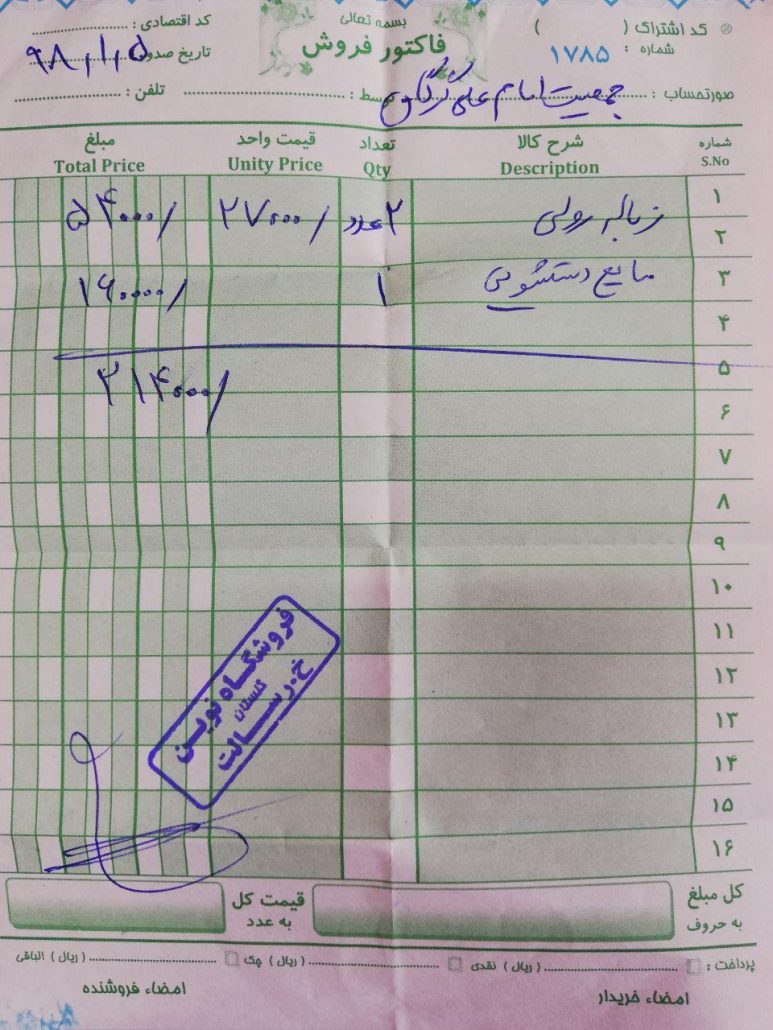 بسمه تعالی
فاکتور فروش
کد اشتراک ( )
شماره : ۱۷۸۵
کد اقتصادی :
تاریخ صدور ۹۸/۱/۵
صورتحساب : جمعیت امام علی گرگان توسط : تلفن :
شماره شرح کالا تعداد قیمت واحد مبلغ
S.No Description Qty Unity Price Total Price
۱ زباله رولی ۲ عدد ۲۷۰۰۰/ ۵۴۰۰۰/
۲
۳ مایع دستشویی ۱ ۱۶۰۰۰۰/
۴
۵
۲۱۴۰۰۰/
۶
۷
۸
۹
۱۰
۱۱
۱۲
۱۳
۱۴
۱۵
۱۶
فروشگاه نوین
گلستان
خ.رسالت
کل مبلغ به حروف
قیمت کل به عدد
پرداخت : ( ریال ) نقدی ( ریال ) چک ( ریال ) الباقی
امضاء خریدار امضاء فروشنده